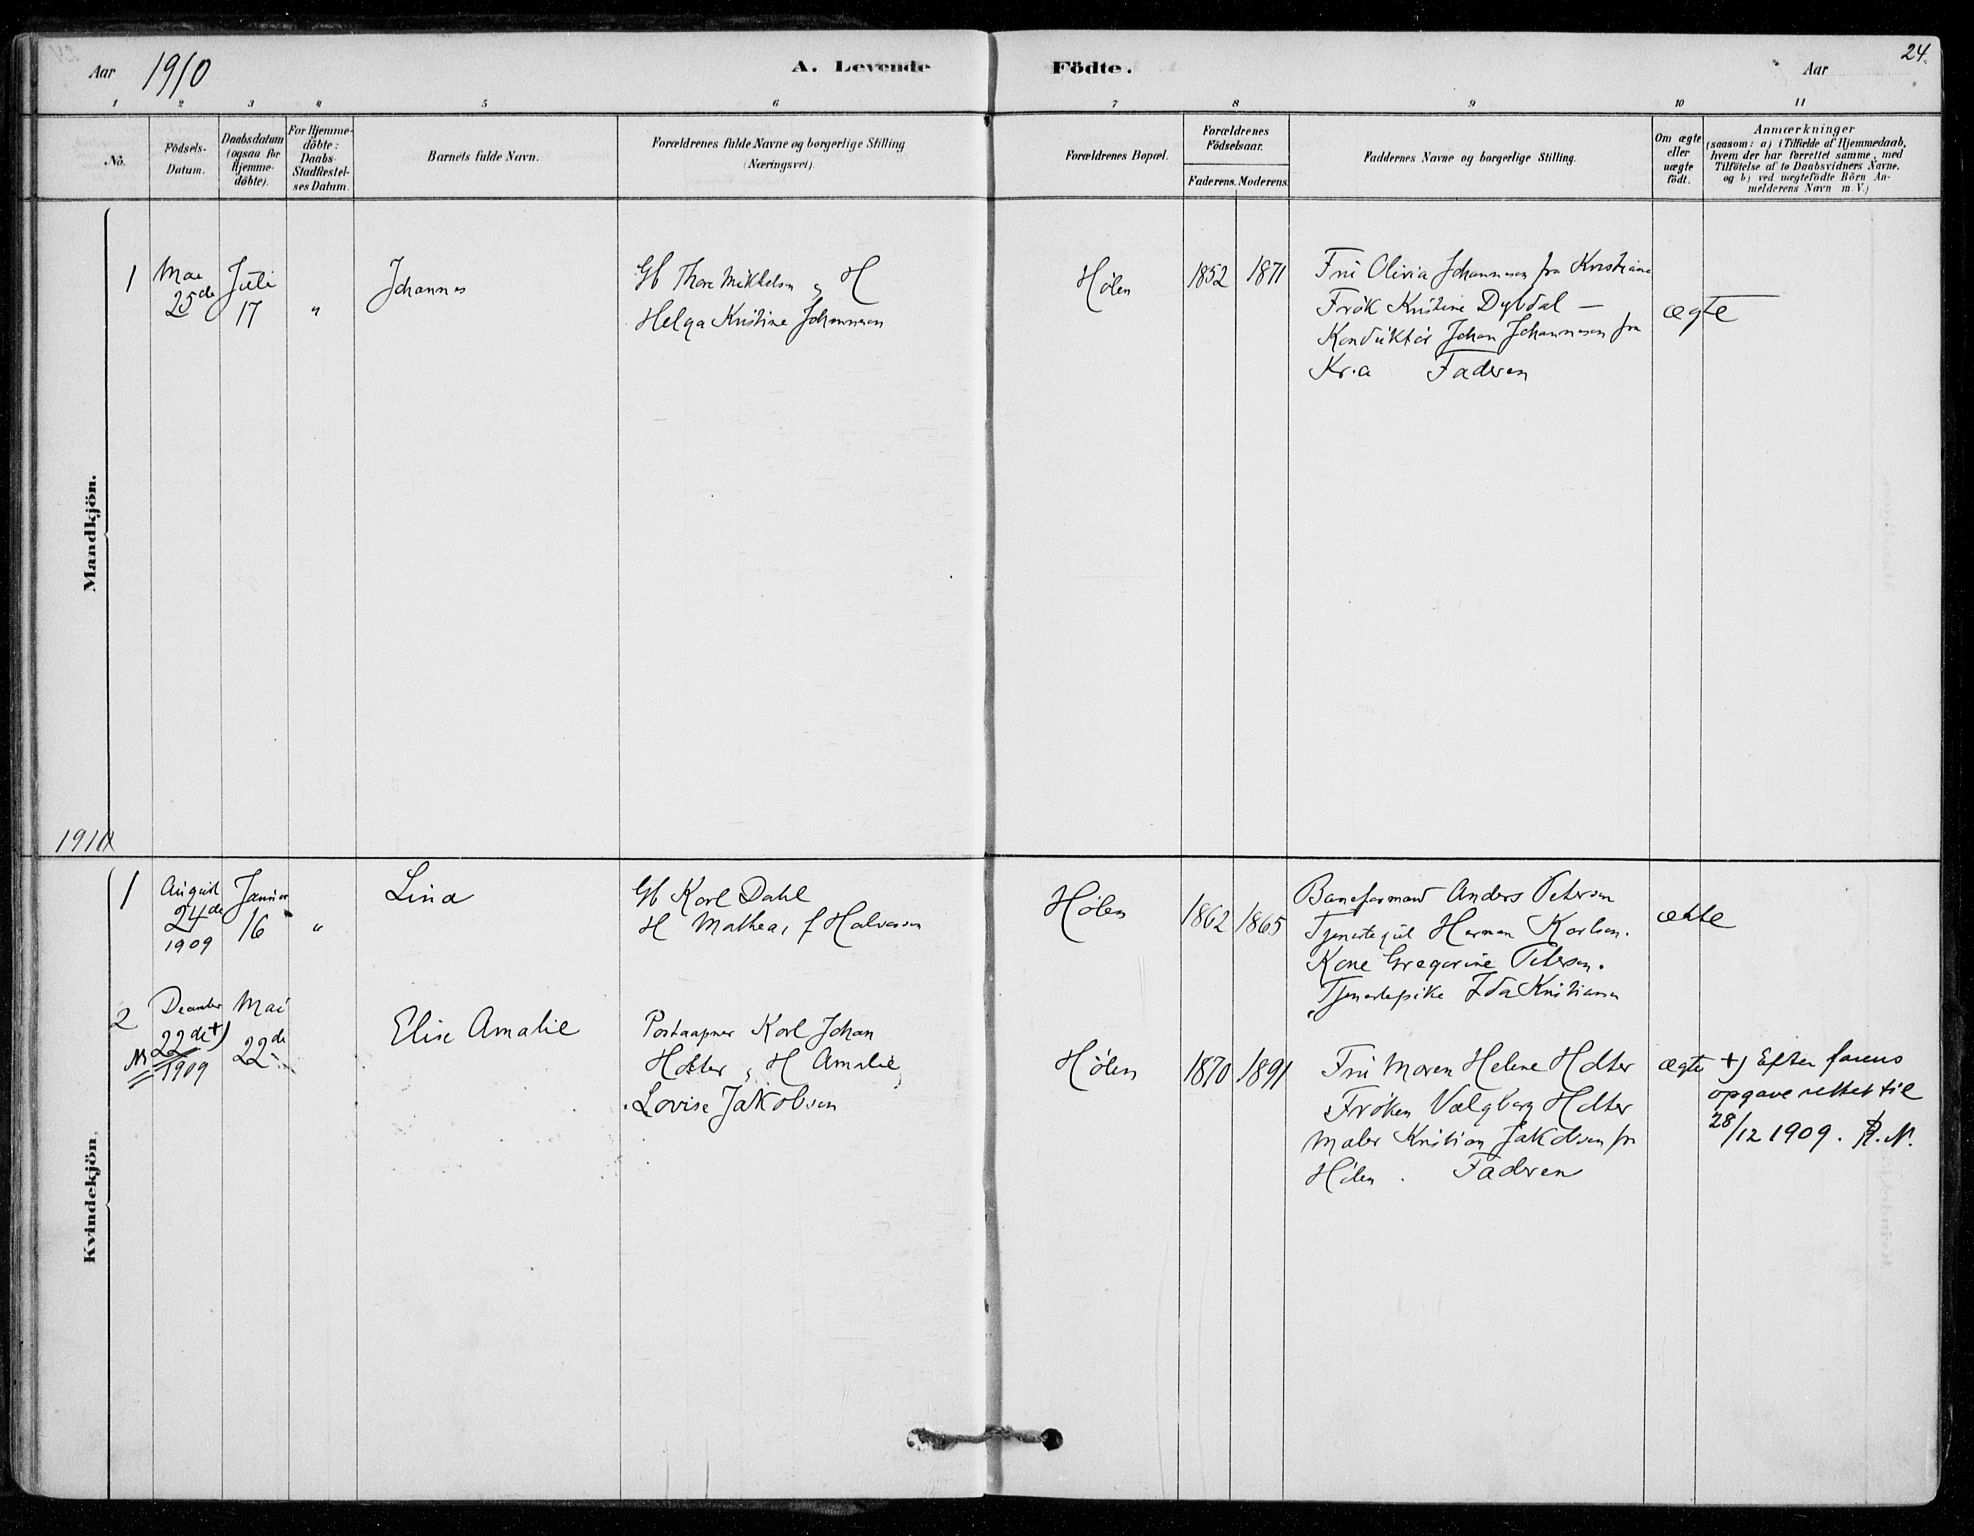 24.
Aar 1910 A. Levende Födte. Aar
1 2 3 4 5 6 7 8 9 10 11
No.
Födsels-Datum.
Daabsdatum (ogsaa for Hjemme-döbte).
For Hjemme-döbte: Daabs-Stadfæstel-ses Datum.
Barnets fulde Navn.
Forældrenes fulde Navne og borgerlige Stilling (Næringsvei).
Forældrenes Bopæl.
Forældrenes Födselsaar.
Faderens. Moderens.
Faddernes Navne og borgerlige Stilling.
Om ægte eller uægte födt.
Anmærkninger
(saasom: a) i Tilfælde af Hjemmedaab,
hvem der har forrettet samme, med
Tilföielse af to Daabsvidners Navne.
og b) ved uægtefödte Börn An-
melderens Navn m. V.)
Mandkjön.
1 Mai 25de Juli 17 " Johannes
Gb Thore Mikkelsen og H
Helga Kristine Johannesen
Hølen 1852 1871
Fru Olivia Johannesen fra Kristiania
Frøk Kristine Dybdal —
Konduktør Johan Johannesen fra
Kr.a Faderen
ægte
1910
Kvindekjön.
1 August 24de 1909 Januar 16 " Lina
Gb Karl Dahl
H Mathea, f Halvorsen
Hølen 1862 1865
Baneformand Anders Petersen
Tjenestegut Herman Karlsen.
Kone Gregorine Petersen.
Tjenestepike Ida Kristiansen
ekte
2 December 22de +) 1909 Mai 22de Elise Amalie
Postaapner Karl Johan
Holter og H Amalie
Lovise Jakobsen
Hølen 1870 1891
Fru Maren Helene Holter
Frøken Valgborg Holter
Maler Kristian Jakobsen fra
Hølen. Faderen
ægte
+) Efter farens
opgave rettet til
28/12 1909. R.N.